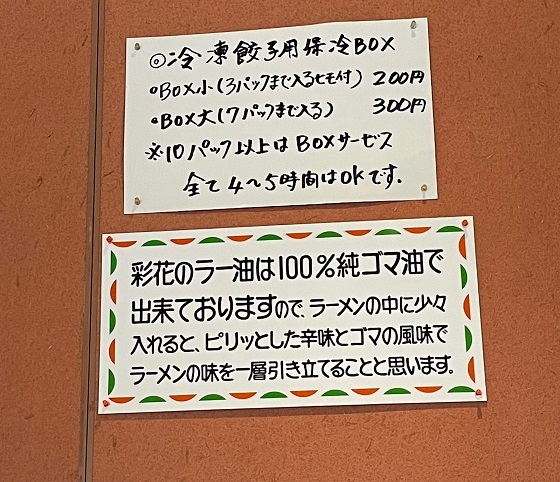 ◎冷凍餃子用保冷BOX
・BOX小(3パックまで入るヒモ付) 200円
・BOX大(7パックまで入る) 300円
※10パック以上はBOXサービス
全て4〜5時間はOKです.
彩花のラー油は100%純ゴマ油で
出来ておりますので、ラーメンの中に少々
入れると、ピリッとした辛味とゴマの風味で
ラーメンの味を一層引き立てることと思います。